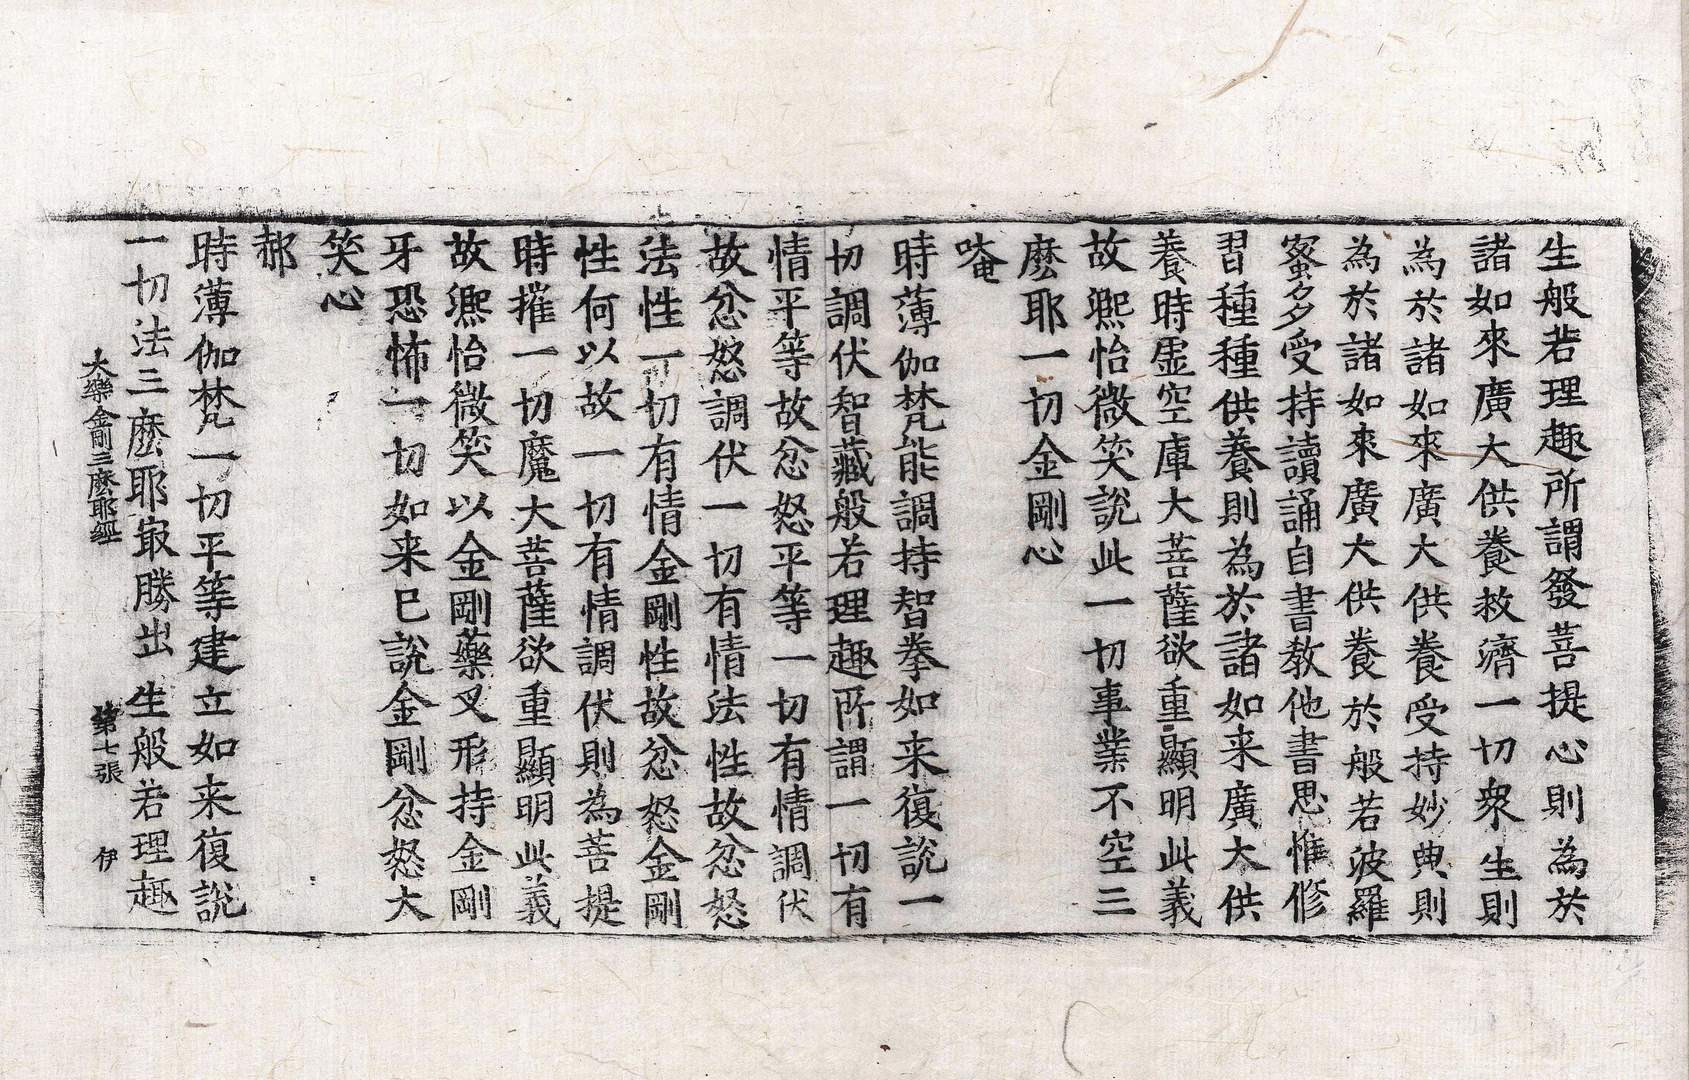 生般若理趣所謂發菩提心則為於
諸如來廣大供養救濟一切衆生則
為於諸如來廣大供養受持妙典則
為於諸如來廣大供養於般若波羅
蜜多受持讀誦自書教他書思惟修
習種種供養則為於諸如来廣大供
養時虛空庫大菩薩欲重顯明此義
故凞怡微笑說此一切事業不空三
麽耶一切金剛心
唵
時薄伽梵能調持智拳如来復說一
切調伏智藏般若理趣所謂一切有
情平等故忿怒平等一切有情調伏
故忿怒調伏一切有情法性故忿怒
法性一切有情金剛性故忿怒金剛
性何以故一切有情調伏則為菩提
時摧一切魔大菩薩欲重顯明此義
故凞怡微笑以金剛藥叉形持金剛
牙恐怖一切如来已說金剛忿怒大
笑心
郝
時薄伽梵一切平等建立如来復說
一切法三麽耶㝡勝出生般若理趣
大樂金剛三麽耶經 第七張 伊